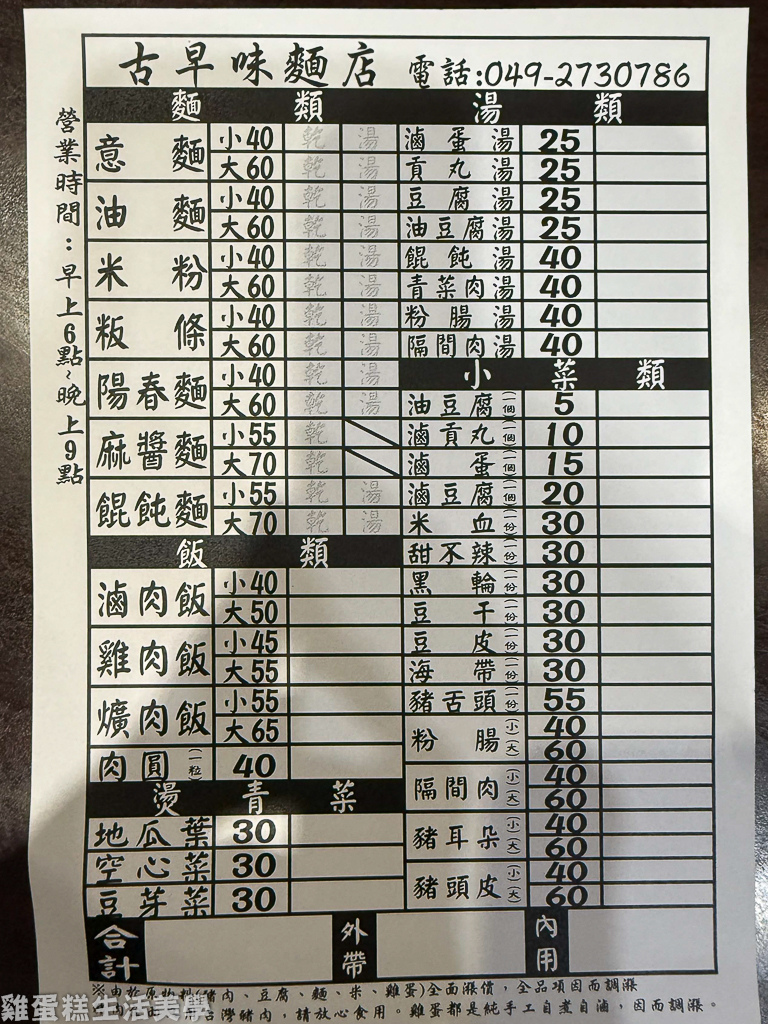 古早味麵店 電話:049-2730786
營業時間:早上6點~晚上9點
麵類
意麵 小40 乾 湯
大60 乾 湯
油麵 小40 乾 湯
大60 乾 湯
米粉 小40 乾 湯
大60 乾 湯
粄條 小40 乾 湯
大60 乾 湯
陽春麵 小40 乾 湯
大60 乾 湯
麻醬麵 小55 乾
大70 乾
餛飩麵 小55 乾 湯
大70 乾 湯
飯類
滷肉飯 小40
大50
雞肉飯 小45
大55
爌肉飯 小55
大65
肉圓(一粒) 40
燙青菜
地瓜葉 30
空心菜 30
豆芽菜 30
湯類
滷蛋湯 25
貢丸湯 25
豆腐湯 25
油豆腐湯 25
餛飩湯 40
青菜肉湯 40
粉腸湯 40
隔間肉湯 40
小菜類
油豆腐(一個) 5
滷貢丸(一個) 10
滷蛋(一個) 15
滷豆腐(一個) 20
米血(一份) 30
甜不辣(一份) 30
黑輪(一份) 30
豆干(一份) 30
豆皮(一份) 30
海帶(一份) 30
豬舌頭(一份) 55
粉腸 (小) 40
(大) 60
隔間肉 (小) 40
(大) 60
豬耳朵 (小) 40
(大) 60
豬頭皮 (小) 40
(大) 60
合計 外帶 內用
※由於原物料(豬肉、豆腐、麵、米、雞蛋)全面漲價,全品項因而調漲
灣豬肉,請放心食用。雞蛋都是純手工自煮自滷,因而調漲。
雞蛋糕生活美學